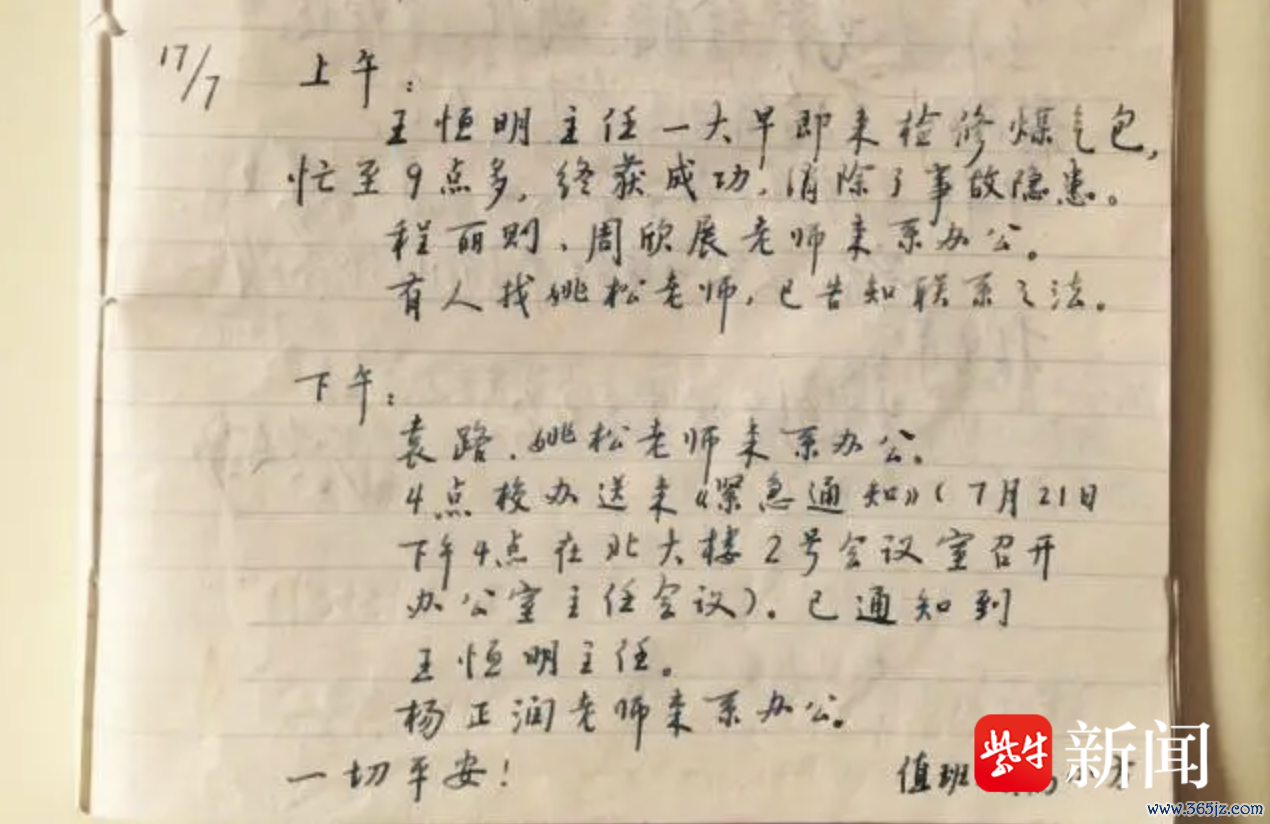 17/7
上午：
王恒明主任一大早即来检修煤气包，
忙至9点多，终获成功，消除了事故隐患。
程丽则、周欣展老师来系办公。
有人找姚松老师，已告知联系之法。
下午：
袁路、姚松老师来系办公。
4点校办送来《紧急通知》（7月21日
下午4点在北大楼2号会议室召开
办公室主任会议）。已通知到
王恒明主任。
杨正润老师来系办公。
一切平安！
值班
紫牛新闻
www.365jz.com